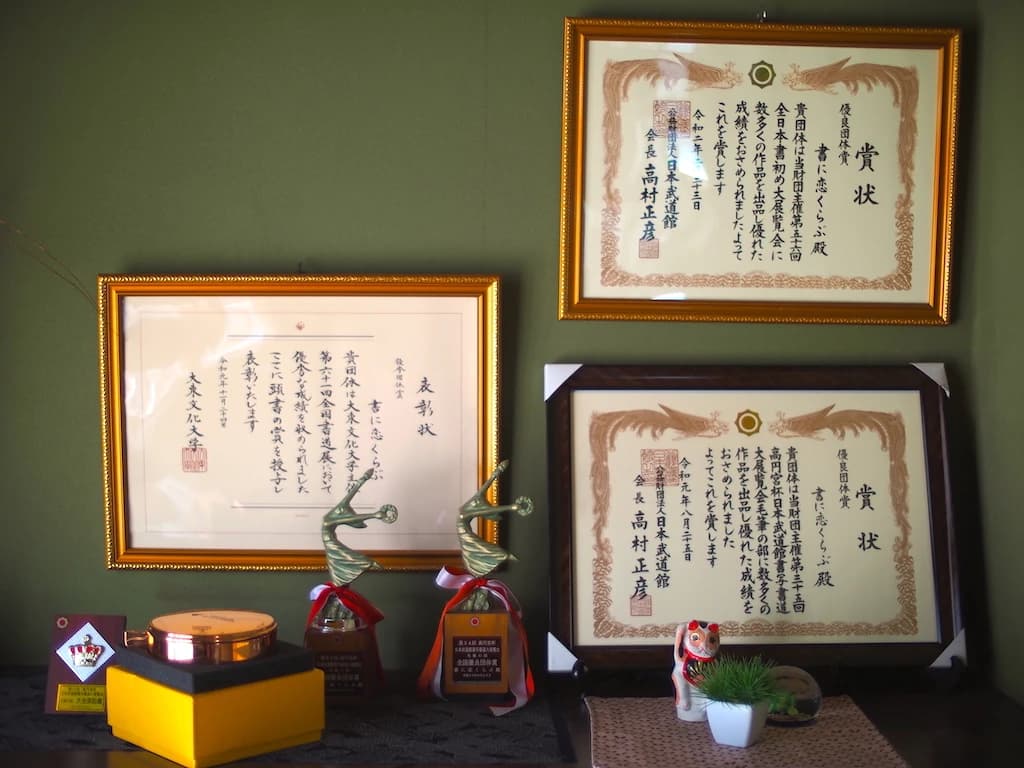 賞状
優良団体賞
書に恋くらぶ殿
貴団体は当財団主催第五十六回
全日本書初め大展覧会に
数多くの作品を出品し優れた
成績をおさめられましたよって
これを賞します
令和二年 二十三日
公益財団法人日本武道館
会長 高村正彦
表彰状
書に恋くらぶ
貴団体は大東文化大学主
第六十一回全国書道展において
優秀な成績を収められました
ここに頭書の賞を授与し
表彰いたします
令和元年十一月二十四日
大東文化大学
賞状
優良団体賞
書に恋くらぶ殿
貴団体は当財団主催第三十五回
高円宮杯日本武道館書写書道
大展覧会毛筆の部に数多くの
作品を出品し優れた成績を
おさめられました
よってこれを賞します
令和元年八月二十五日
公益財団法人日本武道館
会長 高村正彦
第34回 高円宮杯
全国優良団体賞
書に恋くらぶ殿